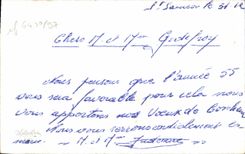 St Samson le 31 12
Chers M et Mme Godefroy
Nous pensons que l'année 55
vous sera favorable pour cela nous
vous apportons nos Voeux de Bonheur
Nous vous serrons cordialement la
main. M et Mme